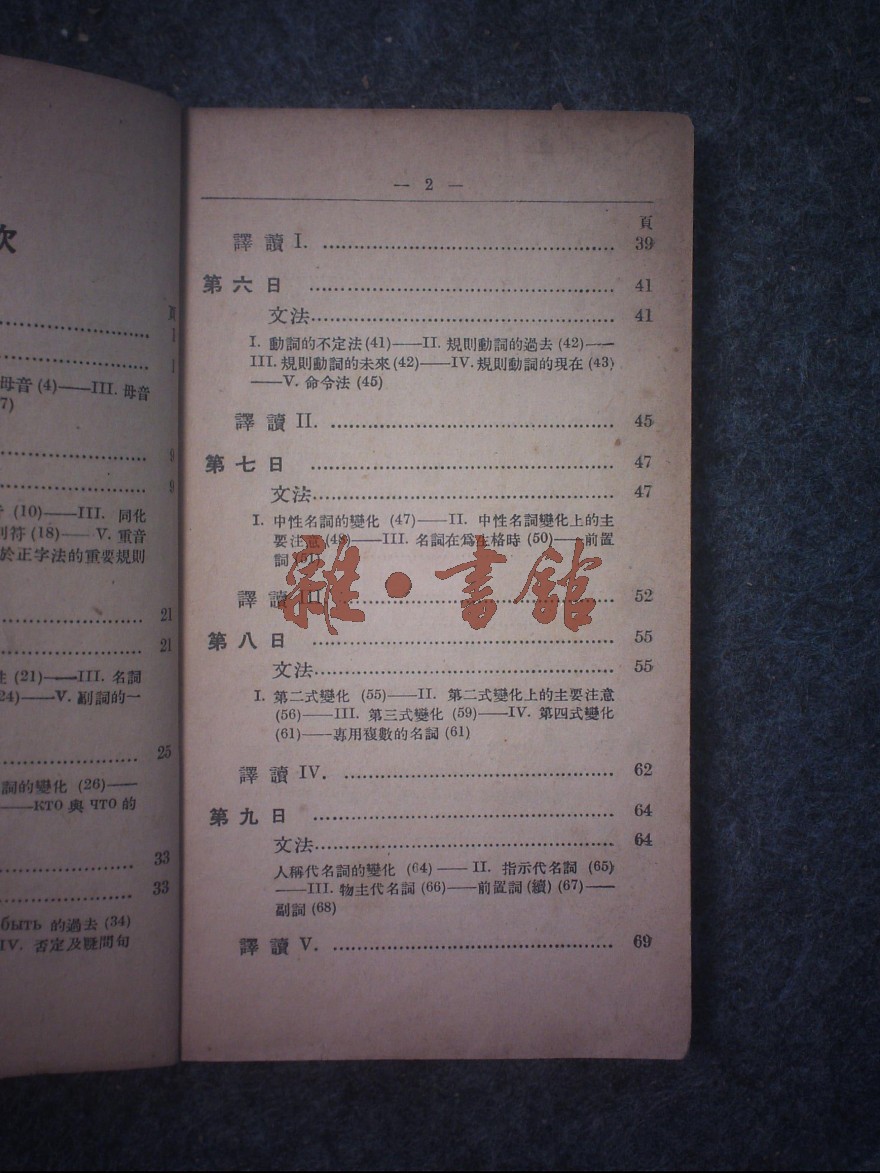 次
頁
母音 (4)——III. 母音
7)
9
9
(10)——III. 同化
別符 (18)——V. 重音
於正字法的重要規則
21
21
(21)——III. 名詞
24)——V. 副詞的一
25
詞的變化 (26)——
——кто 與 что 的
33
33
быть 的過去 (34)
IV. 否定及疑問句
— 2 —
頁
譯讀 I. 39
第六日 41
文法 41
I. 動詞的不定法 (41)——II. 規則動詞的過去 (42)——
III. 規則動詞的未來 (42)——IV. 規則動詞的現在 (43)
——V. 命令法 (45)
譯讀 II. 45
第七日 47
文法 47
I. 中性名詞的變化 (47)——II. 中性名詞變化上的主
要注意 (48)——III. 名詞在爲生格時 (50)——前置
詞 (51)
譯讀 III. 52
雜·書館
第八日 55
文法 55
I. 第二式變化 (55)——II. 第二式變化上的主要注意
(56)——III. 第三式變化 (59)——IV. 第四式變化
(61)——專用複數的名詞 (61)
譯讀 IV. 62
第九日 64
文法 64
人稱代名詞的變化 (64)——II. 指示代名詞 (65)
——III. 物主代名詞 (66)——前置詞 (續) (67)——
副詞 (68)
譯讀 V. 69